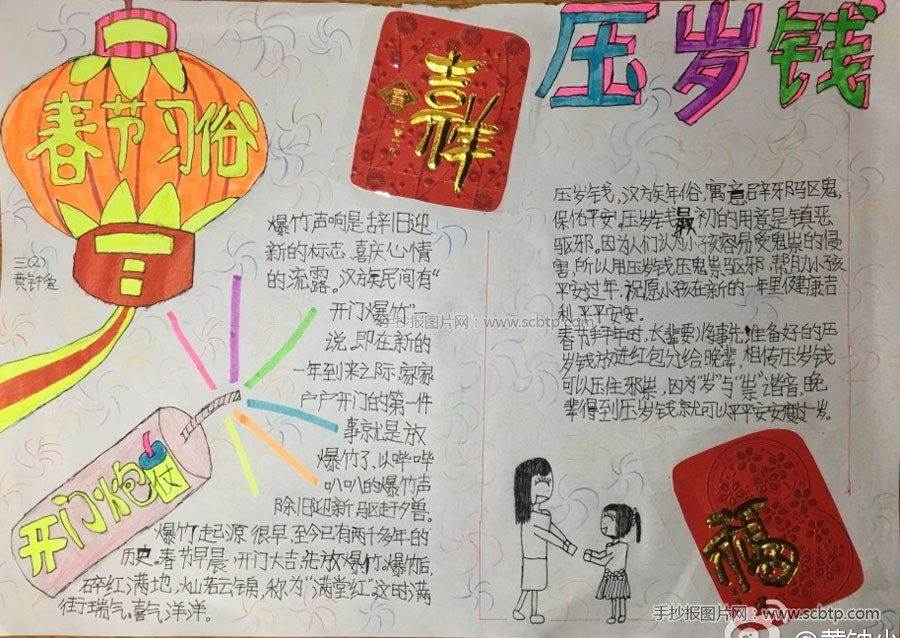 春节习俗
三(2)
吉祥
富
压岁钱
爆竹声响是辞旧迎
新的标志、喜庆心情
的流露。汉族民间有“
开门爆竹”一
说。即在新的
一年到来之际,家家
户户开门的第一件
事就是放
爆竹了,以哔哔
叭叭的爆竹声
除旧迎新、驱赶夕兽。
开门炮仗
爆竹起源很早,至今已有两千多年的
历史。春节早晨,开门大吉,先放爆竹。爆竹后,
碎红满地,灿若云锦,称为“满堂红”这时满
街瑞气,喜气洋洋。
压岁钱,汉族年俗,寓意辟邪驱鬼,
保佑平安。压岁钱最初的用意是镇恶
驱邪。因为人们认为小孩容易受鬼祟的侵
害,所以用压岁钱压鬼祟驱邪,帮助小孩
平安过年,祝愿小孩在新的一年里健康吉
利、平平安安。
春节拜年时,长辈要将事先准备好的压
岁钱放进红包分给晚辈,相传压岁钱
可以压住邪祟,因为“岁”与“祟”谐音,晚
辈得到压岁钱就可以平平安安度过一岁。
福
手抄报图片网:www.scbtp.com
手抄报图片网:www.scbtp.com